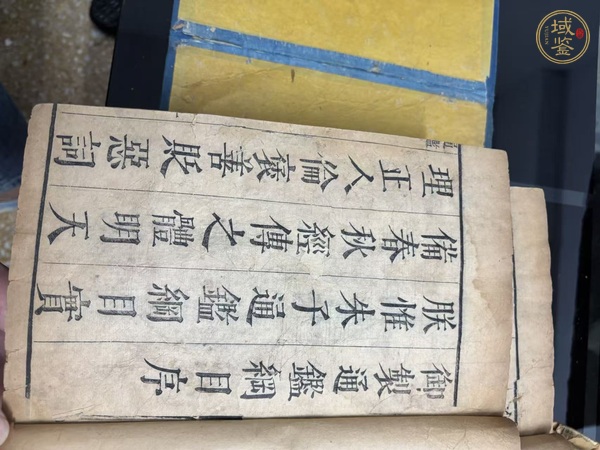 御製通鑑綱目序
朕惟朱子通鑑綱目實
備春秋經傳之體明天
理正人倫褒善貶惡詞
域鉴